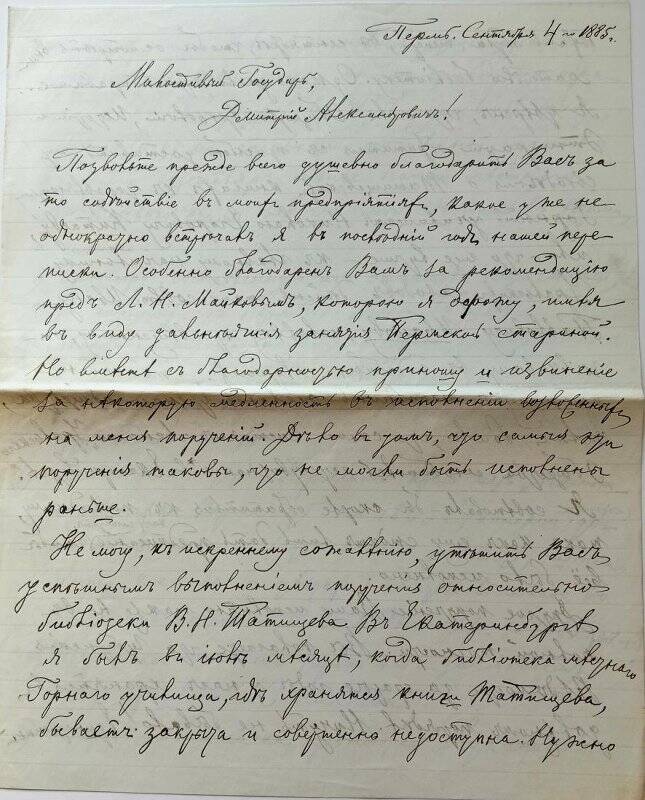 Пермь. Сентября 4-го 1885 г.
Милостивый Государь,
Дмитрий Александровичъ!
Позвольте прежде всего душевно благодарить Васъ за
то содѣйствіе въ моихъ предпріятіяхъ, какое уже не
однократно встрѣчалъ я въ послѣдній годъ нашей пере
писки. Особенно благодаренъ Вамъ за рекомендацію
предъ Л. Н. Майковымъ, которою я дорожу, имѣя
въ виду дальнѣйшія занятія Пермской стариной.
Но вмѣстѣ съ благодарностью приношу и извиненіе
за нѣкоторую медленность въ исполненіи возложенныхъ
на меня порученій. Дѣло въ томъ, что самыя эти
порученія таковы, что не могли быть исполнены
раньше.
Не могу, къ искреннему сожалѣнію, утѣшить Васъ
успѣшнымъ выполненіемъ порученія относительно
библіотеки В. Н. Татищева. Въ Екатеринбургѣ
я былъ въ іюлѣ мѣсяцѣ, когда библіотека мѣстнаго
Горнаго училища, гдѣ хранятся книги Татищева,
бываетъ закрыта и совершенно недоступна. Нужно